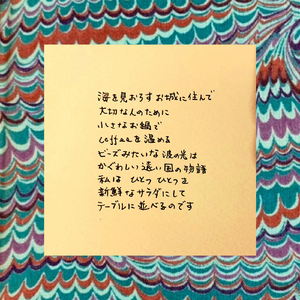 海を見おろすお城に住んで
大切な人のために
小さなお鍋で
coffeeを温める
ビーズみたいな波の光は
かぐわしい遠い国の物語
私は ひとつ ひとつを
新鮮なサラダにして
テーブルに並べるのです